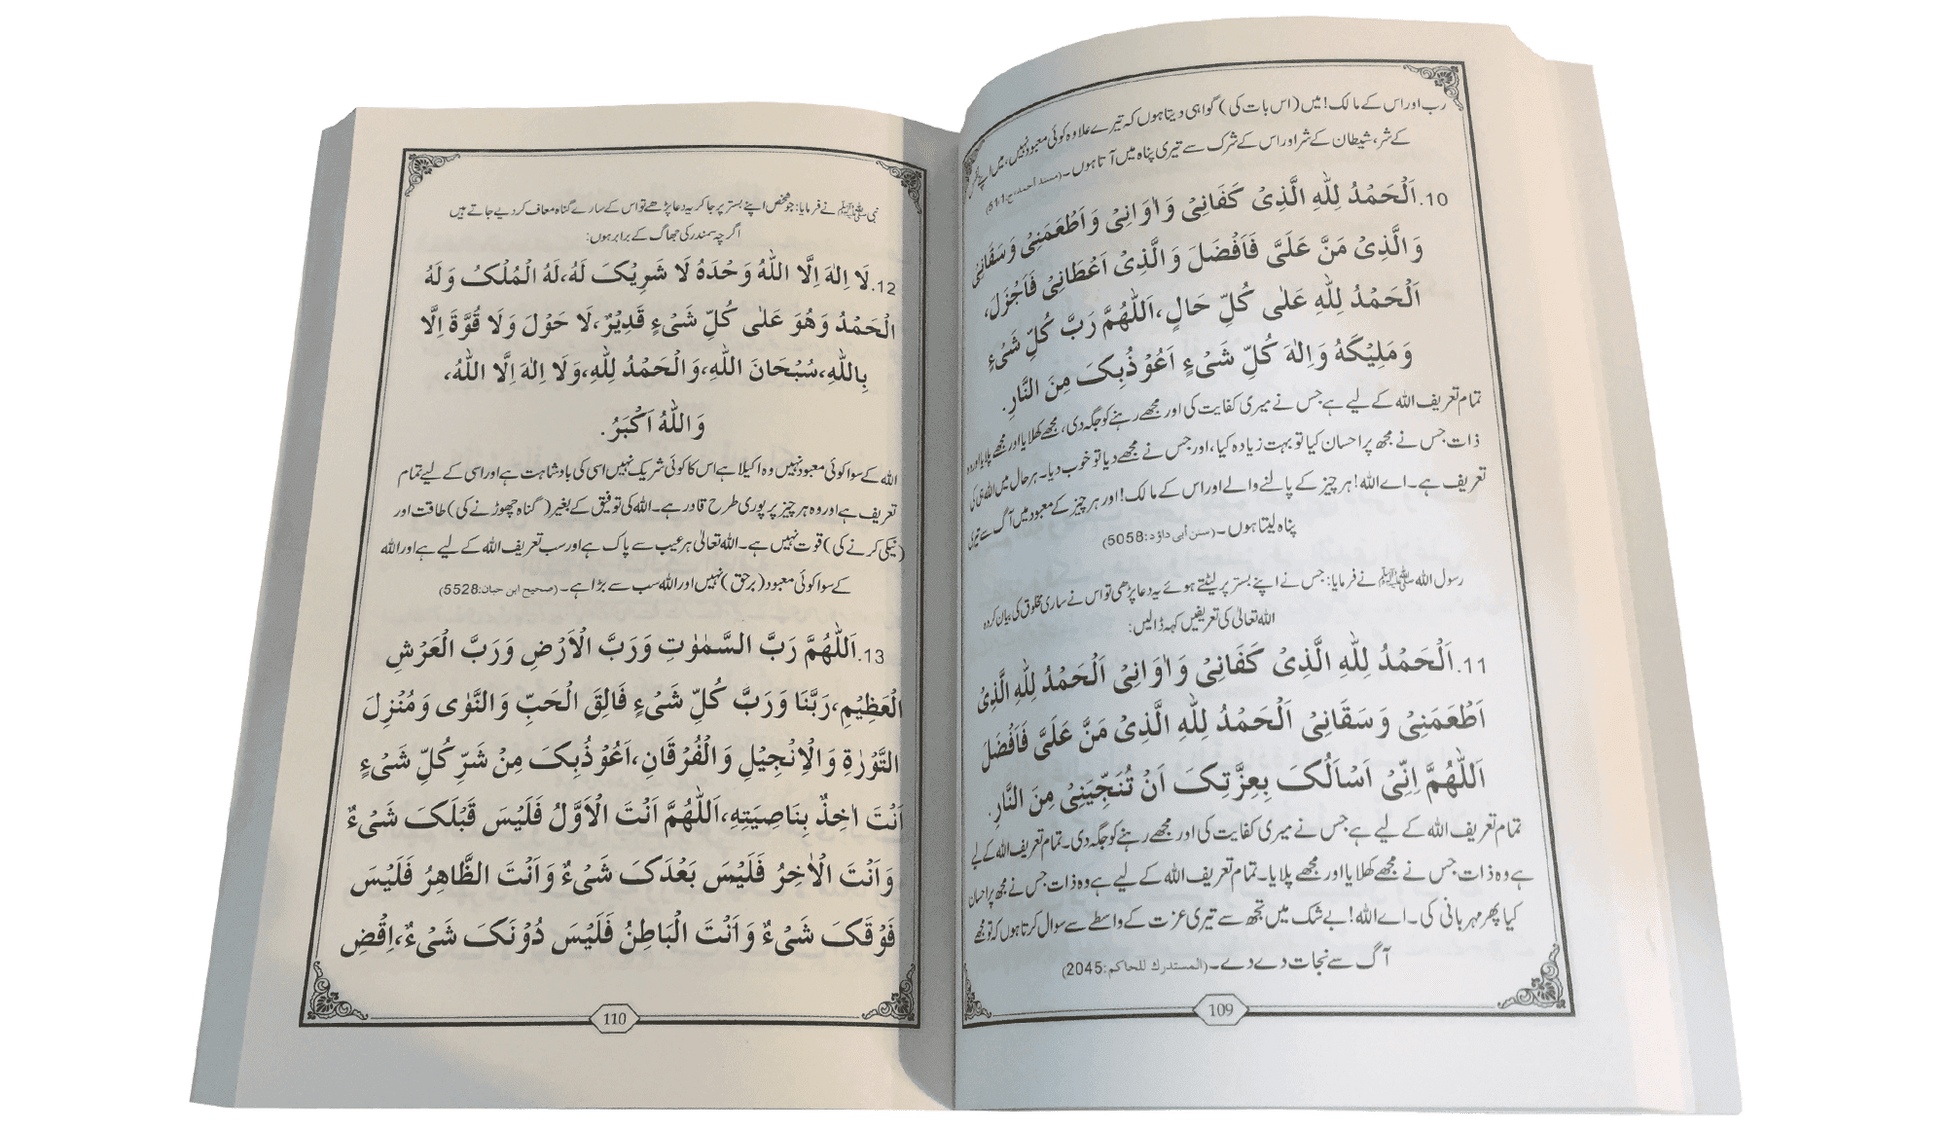 رب اور اس کے مالک! میں (اس بات کی) گواہی دیتا ہوں کہ تیرے علاوہ کوئی معبود نہیں، میں اپنے نفس
کے شر، شیطان کے شر اور اس کے شرک سے تیری پناہ میں آتا ہوں۔ (مسند أحمد، ج:1-51)
10. اَلْحَمْدُ لِلّٰهِ الَّذِیْ كَفَانِیْ وَاٰوَانِیْ وَاَطْعَمَنِیْ وَسَقَانِیْ
وَالَّذِیْ مَنَّ عَلَیَّ فَاَفْضَلَ وَالَّذِیْ اَعْطَانِیْ فَاَجْزَلَ،
اَلْحَمْدُ لِلّٰهِ عَلٰی كُلِّ حَالٍ، اَللّٰهُمَّ رَبَّ كُلِّ شَیْءٍ
وَمَلِیْكَهُ وَاِلٰهَ كُلِّ شَیْءٍ اَعُوْذُبِكَ مِنَ النَّارِ.
تمام تعریف اللہ کے لیے ہے جس نے میری کفایت کی اور مجھے رہنے کو جگہ دی، مجھے کھلایا اور مجھے پلایا اور وہ
ذات جس نے مجھ پر احسان کیا تو بہت زیادہ کیا، اور جس نے مجھے دیا تو خوب دیا۔ ہر حال میں اللہ ہی کی
تعریف ہے۔ اے اللہ! ہر چیز کے پالنے والے اور اس کے مالک! اور ہر چیز کے معبود میں آگ سے تیری
پناہ لیتا ہوں۔ (سنن أبی داؤد:5058)
رسول اللہ ﷺ نے فرمایا: جس نے اپنے بستر پر لیٹتے ہوئے یہ دعا پڑھی تو اس نے ساری مخلوق کی بیان کردہ
اللہ تعالیٰ کی تعریفیں کہہ ڈالیں:
11. اَلْحَمْدُ لِلّٰهِ الَّذِیْ كَفَانِیْ وَاٰوَانِیْ اَلْحَمْدُ لِلّٰهِ الَّذِیْ
اَطْعَمَنِیْ وَسَقَانِیْ اَلْحَمْدُ لِلّٰهِ الَّذِیْ مَنَّ عَلَیَّ فَاَفْضَلَ
اَللّٰهُمَّ اِنِّیْ اَسْاَلُكَ بِعِزَّتِكَ اَنْ تُنَجِّیَنِیْ مِنَ النَّارِ.
تمام تعریف اللہ کے لیے ہے جس نے میری کفایت کی اور مجھے رہنے کو جگہ دی۔ تمام تعریف اللہ کے لیے
ہے وہ ذات جس نے مجھے کھلایا اور مجھے پلایا۔ تمام تعریف اللہ کے لیے ہے وہ ذات جس نے مجھ پر احسان
کیا پھر مہربانی کی۔ اے اللہ! بے شک میں تجھ سے تیری عزت کے واسطے سے سوال کرتا ہوں کہ تو مجھے
آگ سے نجات دے دے۔ (المستدرك للحاكم:2045)
109
نبی ﷺ نے فرمایا: جو شخص اپنے بستر پر جا کر یہ دعا پڑھے تو اس کے سارے گناہ معاف کر دیے جاتے ہیں
اگرچہ سمندر کی جھاگ کے برابر ہوں:
12. لَا اِلٰهَ اِلَّا اللّٰهُ وَحْدَهُ لَا شَرِیْكَ لَهُ، لَهُ الْمُلْكُ وَلَهُ
الْحَمْدُ وَهُوَ عَلٰی كُلِّ شَیْءٍ قَدِیْرٌ، لَا حَوْلَ وَلَا قُوَّةَ اِلَّا
بِاللّٰهِ، سُبْحَانَ اللّٰهِ، وَالْحَمْدُ لِلّٰهِ، وَلَا اِلٰهَ اِلَّا اللّٰهُ،
وَاللّٰهُ اَكْبَرُ.
اللہ کے سوا کوئی معبود نہیں وہ اکیلا ہے اس کا کوئی شریک نہیں اسی کی بادشاہت ہے اور اسی کے لیے تمام
تعریف ہے اور وہ ہر چیز پر پوری طرح قادر ہے۔ اللہ کی توفیق کے بغیر (گناہ چھوڑنے کی) طاقت اور
(نیکی کرنے کی) قوت نہیں ہے۔ اللہ تعالیٰ ہر عیب سے پاک ہے اور سب تعریف اللہ کے لیے ہے اور اللہ
کے سوا کوئی معبود (برحق) نہیں اور اللہ سب سے بڑا ہے۔ (صحیح ابن حبان:5528)
13. اَللّٰهُمَّ رَبَّ السَّمٰوٰتِ وَرَبَّ الْاَرْضِ وَرَبَّ الْعَرْشِ
الْعَظِیْمِ، رَبَّنَا وَرَبَّ كُلِّ شَیْءٍ فَالِقَ الْحَبِّ وَالنَّوٰی وَمُنْزِلَ
التَّوْرٰةِ وَالْاِنْجِیْلِ وَالْفُرْقَانِ، اَعُوْذُبِكَ مِنْ شَرِّ كُلِّ شَیْءٍ
اَنْتَ اٰخِذٌ بِنَاصِیَتِهِ، اَللّٰهُمَّ اَنْتَ الْاَوَّلُ فَلَیْسَ قَبْلَكَ شَیْءٌ
وَاَنْتَ الْاٰخِرُ فَلَیْسَ بَعْدَكَ شَیْءٌ وَاَنْتَ الظَّاهِرُ فَلَیْسَ
فَوْقَكَ شَیْءٌ وَاَنْتَ الْبَاطِنُ فَلَیْسَ دُوْنَكَ شَیْءٌ، اِقْضِ
110